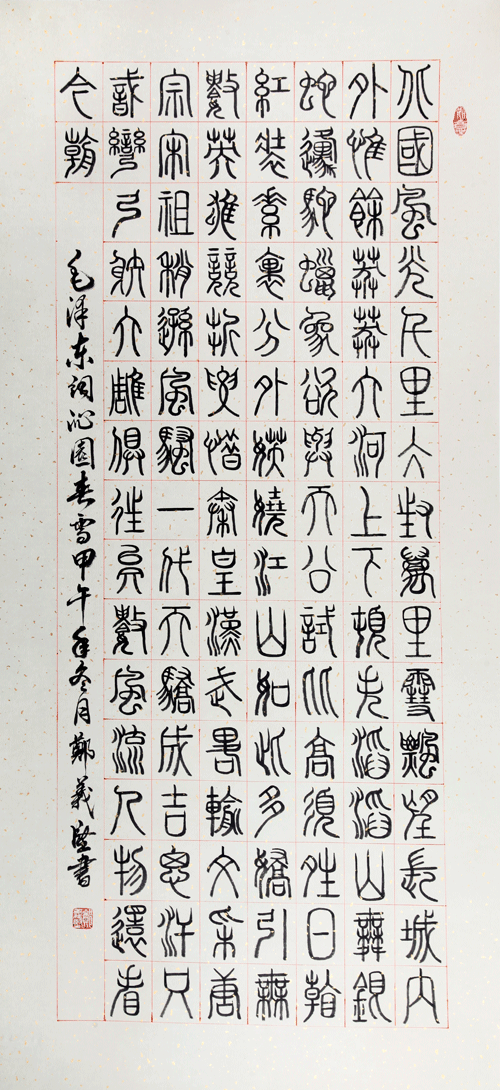 北國風光千里冰封萬里雪飄望長城內
外惟餘莽莽大河上下頓失滔滔山舞銀
蛇原馳蠟象欲與天公試比高須晴日看
紅裝素裹分外妖嬈江山如此多嬌引無
數英雄競折腰惜秦皇漢武略輸文采唐
宗宋祖稍遜風騷一代天驕成吉思汗只
識彎弓射大雕俱往矣數風流人物還看
今朝
毛泽东词沁園春雪甲午年冬月鄭義堅書